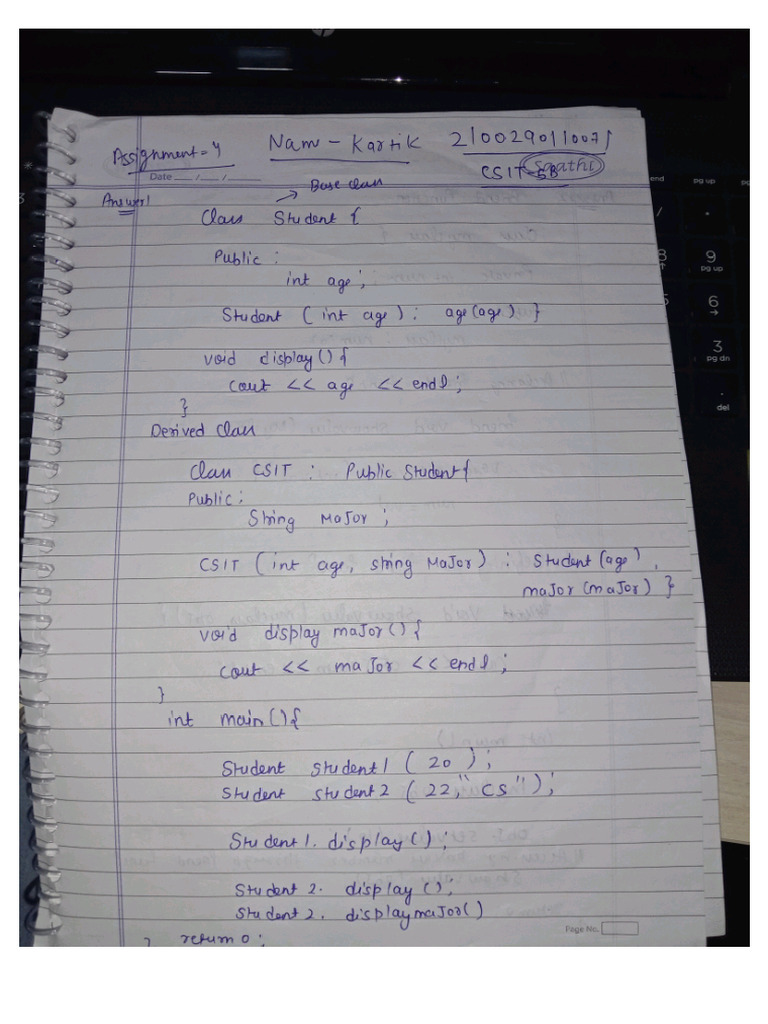 Assignment = 4 Name - Kartik 2100290110071
Date ___/___/___ CSIT-5B
Answer1 → Base class
Class Student {
Public :
int age;
Student ( int age ) : age(age) }
void display() {
cout << age << endl ;
}
Derived Class
Class CSIT : Public Student {
Public :
String Major ;
CSIT ( int age, string Major ) : Student (age) ,
major (major) }
void display major() {
cout << major << endl ;
}
int main() {
Student student1 ( 20 ) ;
Student student2 ( 22, "CS" ) ;
Student1. display () ;
Student 2. display () ;
Student 2. displaymajor()
} return 0 ;
Page No.
end
pg up
9
pg up
8
6
→
3
pg dn
.
del